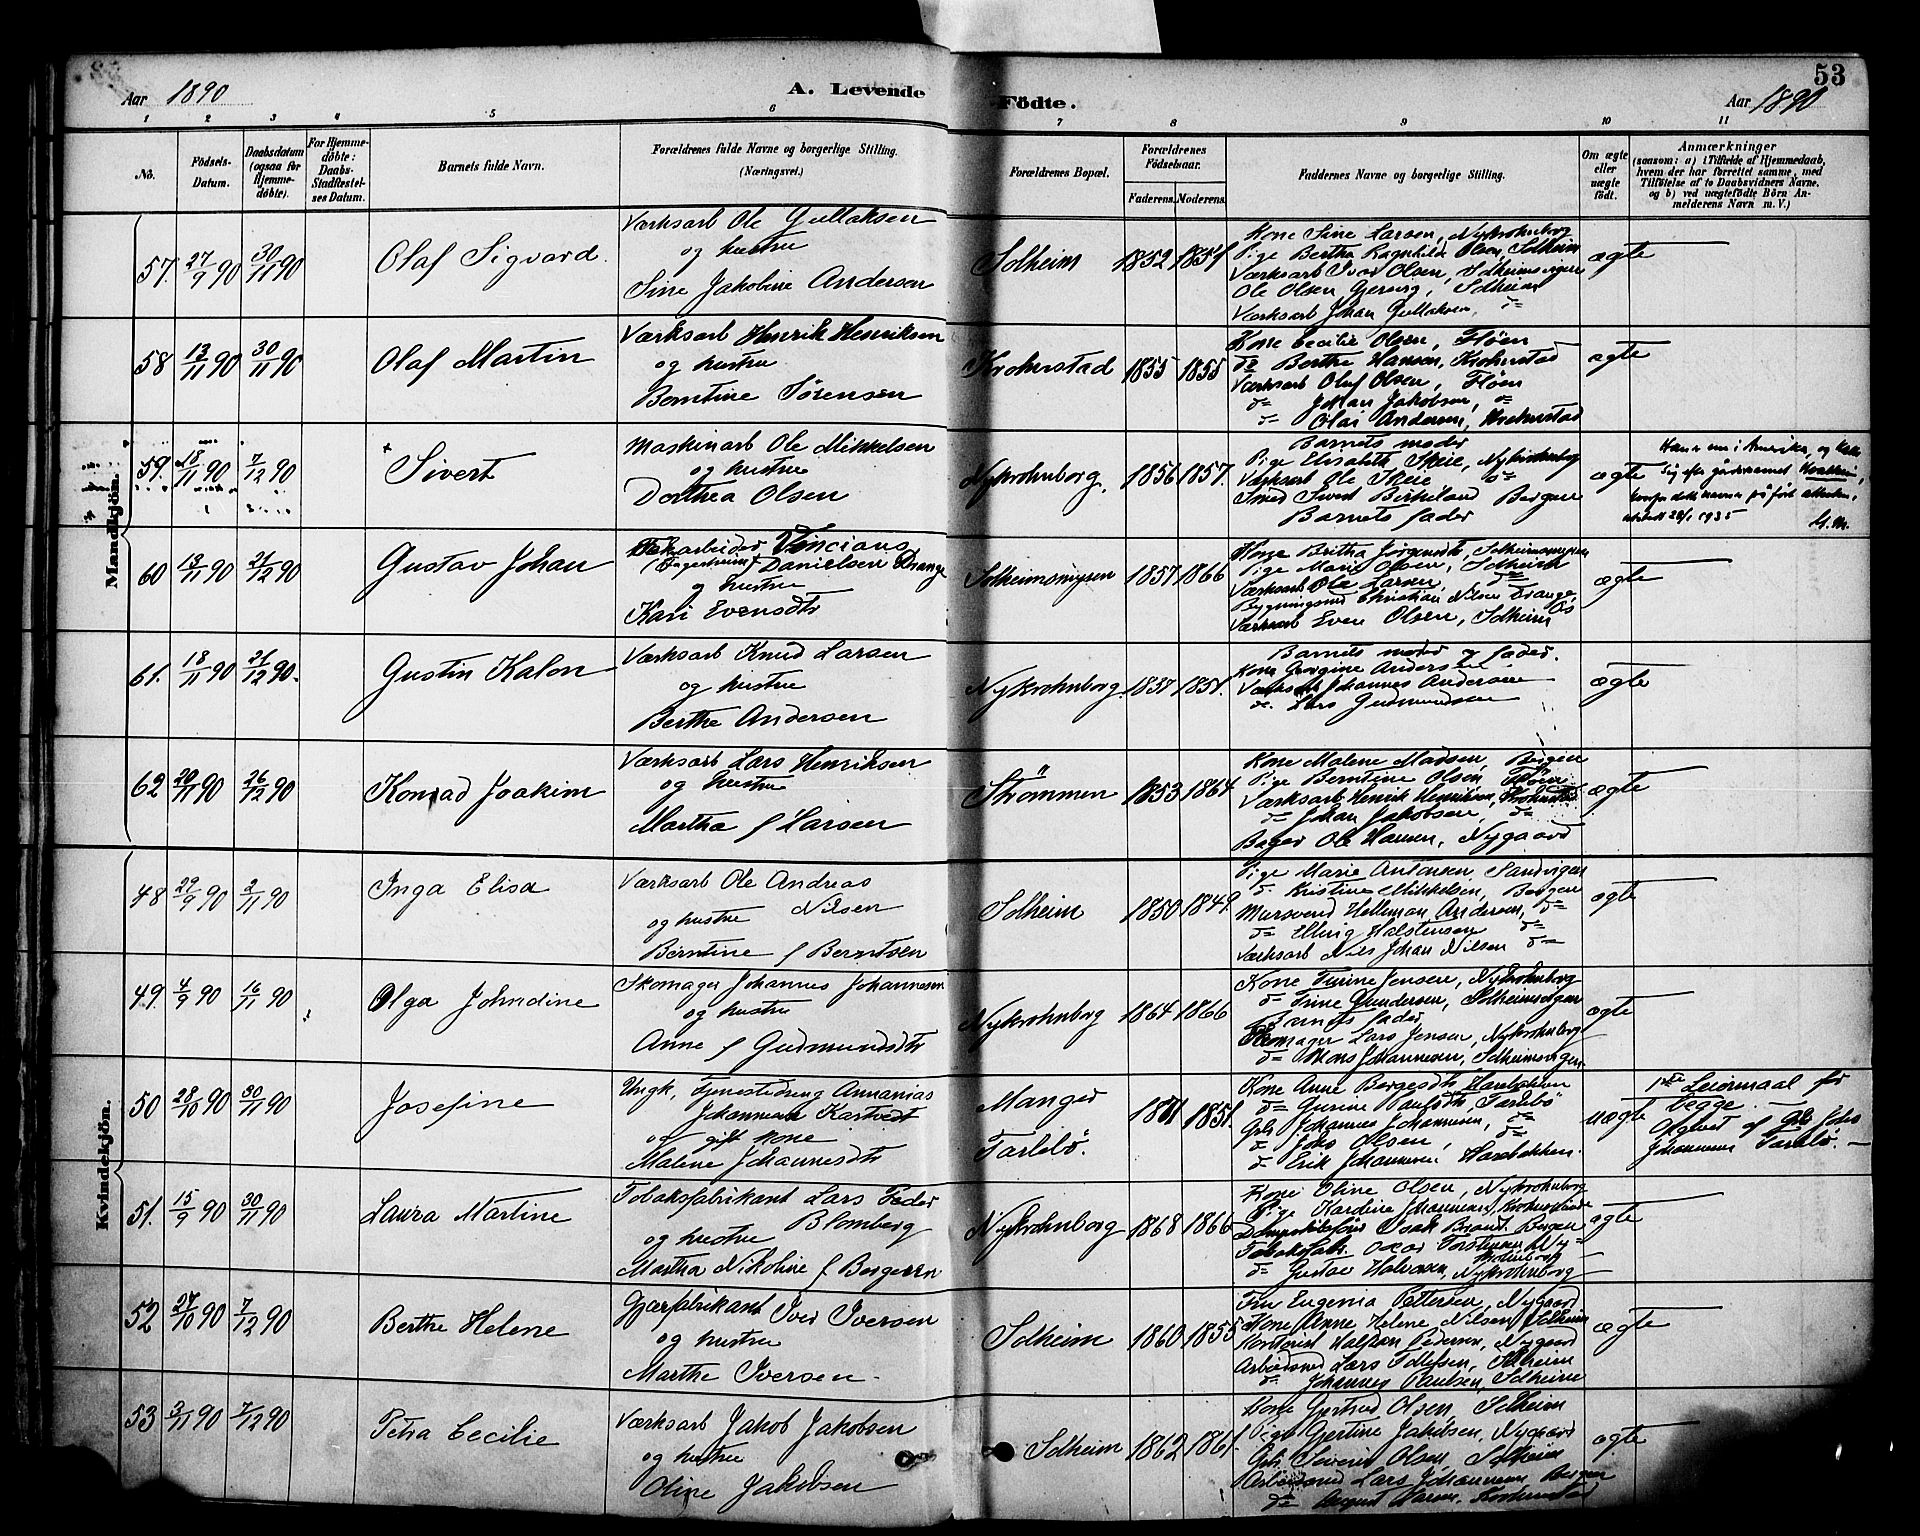 53
Aar 1890 A. Levende Födte. Aar 1890
1 2 3 4 5 6 7 8 9 10 11
No.
Födsels-Datum.
Daabsdatum (ogsaa for Hjemmedöbte).
For Hjemmedöbte: Daabs-Stadfæstelses Datum.
Barnets fulde Navn.
Forældrenes fulde Navne og borgerlige Stilling.
(Næringsvei.)
Forældrenes Bopæl.
Forældrenes Födselsaar.
Faderens. Moderens.
Faddernes Navne og borgerlige Stilling.
Om ægte eller uægte födt.
Anmærkninger
(saasom: a) i Tilfælde af Hjemmedaab,
hvem der har forrettet samme, med
Tilföielse af to Daabsvidners Navne,
og b) ved uægtefödte Börn Anmelderens Navn m. V.)
Mandkjön.
57. 27/9 90 30/11 90 Olaf Sigvard.
Værksarb Ole Gullaksen
og hustru
Sine Jakobine Andersen
Solheim 1852 1854
Kone Sine Larsen, Nykrohnborg
Pige Bertha Ragnhild Olsen, Solheim
Værksarb Ivar Olsen, Solheimsvigen
Ole Olsen Gjerving, Solheim
Værksarb Johan Gullaksen, do
ægte
58 13/11 90 30/11 90 Olaf Martin
Værksarb Henrik Henriksen
og hustru
Berntine Sörensen
Krohnstad 1855 1855
Kone Cecilie Olsen, Flöen
do Berthe Hansen, Krohnstad
Værksarb Oluf Olsen, Flöen
do Johan Jakobsen, do
do Olai Andersen, Krohnstad
ægte
59. 18/11 90 7/12 90 Sivert
Maskinarb Ole Mikkelsen
og hustru
Dorthea Olsen
Nykrohnborg. 1856 1857.
Barnets moder
Pige Elisabeth Skeie, Nykrohnborg
Værksarb Ole Skeie do
Smed Sivert Birkeland Bergen
Barnets fader
ægte
Han er nu i Amerika, og kalder
sig efter gårdsnavnet
dette navnet på
28/1 1935
60 13/11 90 21/12 90 Gustav Johan
Vincians
Danielsen Drange
og hustru
Kari Evensdtr
Solheimsmyren 1857 1866
Kone Britha Jörgensdtr, Solheimsmyren
Pige Marie Olsen, Solheim
Værksarb Ole Larsen, do
Bygningssnd Christian Nilsen Drange
Os
Værksarb Even Olsen, Solheim
ægte
61. 18/11 90 21/12 90. Gustin Kalon
Værksarb Knud Larsen
og hustru
Berthe Andersen
Nykrohnborg. 1857 1851.
Barnets moder og fader.
Kone Georgine Andersen
Værksarb Johannes Andersen
do. Lars Gudmundsen
ægte
62 20/11 90 26/12 90 Konrad Joakim
Værksarb Lars Henriksen
og hustru
Martha f Larsen
Strömmen 1853 1864
Kone Malene Madsen, Bergen
Pige Berntine Olsen, Flöen
Værksarb Henrik Henriksen, Krohnstad
do Johan Jakobsen, do
Bager Ole Hansen, Nygaard
ægte
Kvindekjön.
48 29/9 90 2/11 90 Inga Elisa
Værksarb Ole Andreas
Nilsen
og hustru
Berntine f Berntsen
Solheim 1850 1849
Pige Marie Antonsen, Sandvigen
do. Kristine Mikkelsen, Bergen
Mursvend Helleman Andersen, do
do Elling Halstensen do
Værksarb Nils Johan Nilsen do
ægte
49. 4/9 90 16/11 90 Olga Johndine
Skomager Johannes Johannesen
og hustru
Anne f Gudmundsdtr
Nykrohnborg 1864 1866
Kone Turine Jensen, Nykrohnborg
do Trine Gundersen, Solheimsvigen
Barnets fader
Skomager Lars Jensen, Nykrohnborg
do Mons Johannesen, Solheimsvigen
ægte
50 28/10 90 30/11 90 Josefine
Ungk, Tjenestedreng Annanias
Johannesen Kartveit
og gift kone
Malene Johannesdtr
Manger
Tarlebö. 1871 1851.
Kone Anne Børgesdtr, Harebakken
do Gurine Paulsdtr, Tarlebö
Grb. Johannes Johannesen, do
do Johs Olsen, do
do Erik Johannesen Harebakken.
uægte
1ste Leiermaal for
begge.
Opgivet af Grb Johs
Johannesen Tarlebö.
51. 15/9 90 30/11 90 Laura Martine
Tobaksfabrikant Lars Peder
Blomberg
og hustru
Martha Nikoline f Børgesen
Nykrohnborg 1868 1866
Kone Oline Olsen, Nykrohnborg
Pige Kardine Johannesen,
Dampskibsförer Isak Brandt. Bergen
Tobaksfabr. Oscar Torstensen Nykrohnborg
do Gustav Halvorsen, Nykrohnborg
ægte
52 27/10 90 7/12 90 Berthe Helene
Gjærfabrikant Iver Iversen
og hustru
Marthe Iversen
Solheim 1860 1855
Fru Eugenia Pettersen, Nygaard
Kone Anne Helene Nilsen, Solheim
Kontorist Halfdan Pedersen, Nygaard
Arbeidsmd Lars Tollefsen, Solheim
do Johannes Paulsen, Solheim
ægte
53 3/11 90 7/12 90 Petra Cecilie
Værksarb Jakob Jakobsen
og hustru
Oline Jakobsen
Solheim 1862 1861.
Kone Gertrud Olsen, Solheim
Pige Gertine Jakobsen, Nygaard
Grb. Severin Olsen, Solheim
Arbeidsmd Lars Johannesen Bergen
do August Larsen, Krohnstad
ægte